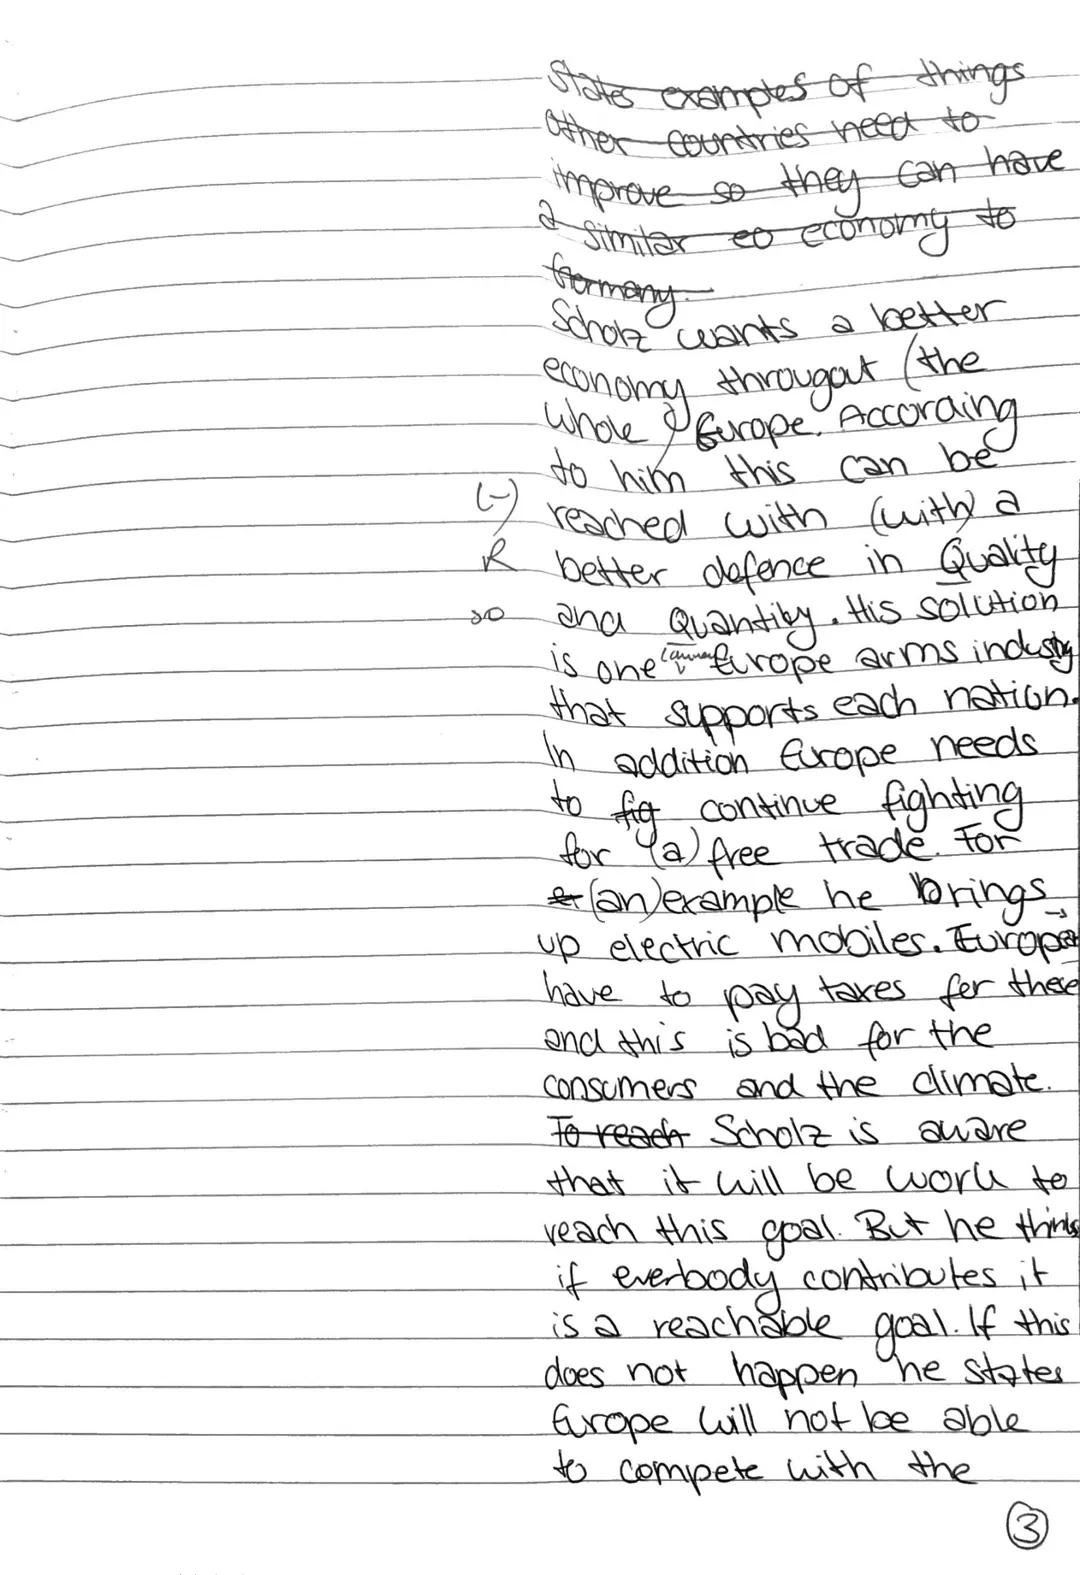 States examples of things
other countries need to
improve so they can have
a similar eo economy to
Germany.
Scholz wants a better
economy througout (the
whole) Europe. According
to him this can be
(-) reached with (with) a
R better defence in Quality
so and Quantity. His solution
is one Europe arms industy
that supports each nation.
In addition Europe needs
to fig continue fighting
for (a) free trade. For
(an) example he brings
up electric mobiles. Europe
have to pay taxes for these
and this is bad for the
consumers and the climate.
To reach Scholz is aware
that it will be work to
reach this goal. But he thinks
if everbody contributes it
is a reachable goal. If this
does not happen he states
Europe will not be able
to compete with the
3